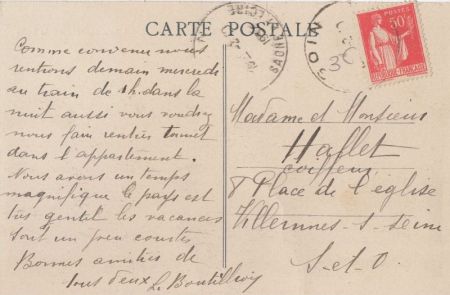 CARTE POSTALE
SAONE
50c
POSTES
REPUBLIQUE FRANÇAISE
Comme convenu nous
rentrons demain mercredi
au train de 1h. dans la
nuit aussi vous voudrez
nous faire rentrer
dans l'appartement.
Nous avons un temps
magnifique le pays est
très gentil les vacances
sont un peu courtes
Bonnes amitiés de
tous deux
Madame et Monsieur
Hallet
coiffeur
8 Place de l'église
Villennes-s-seine
S-et-O.